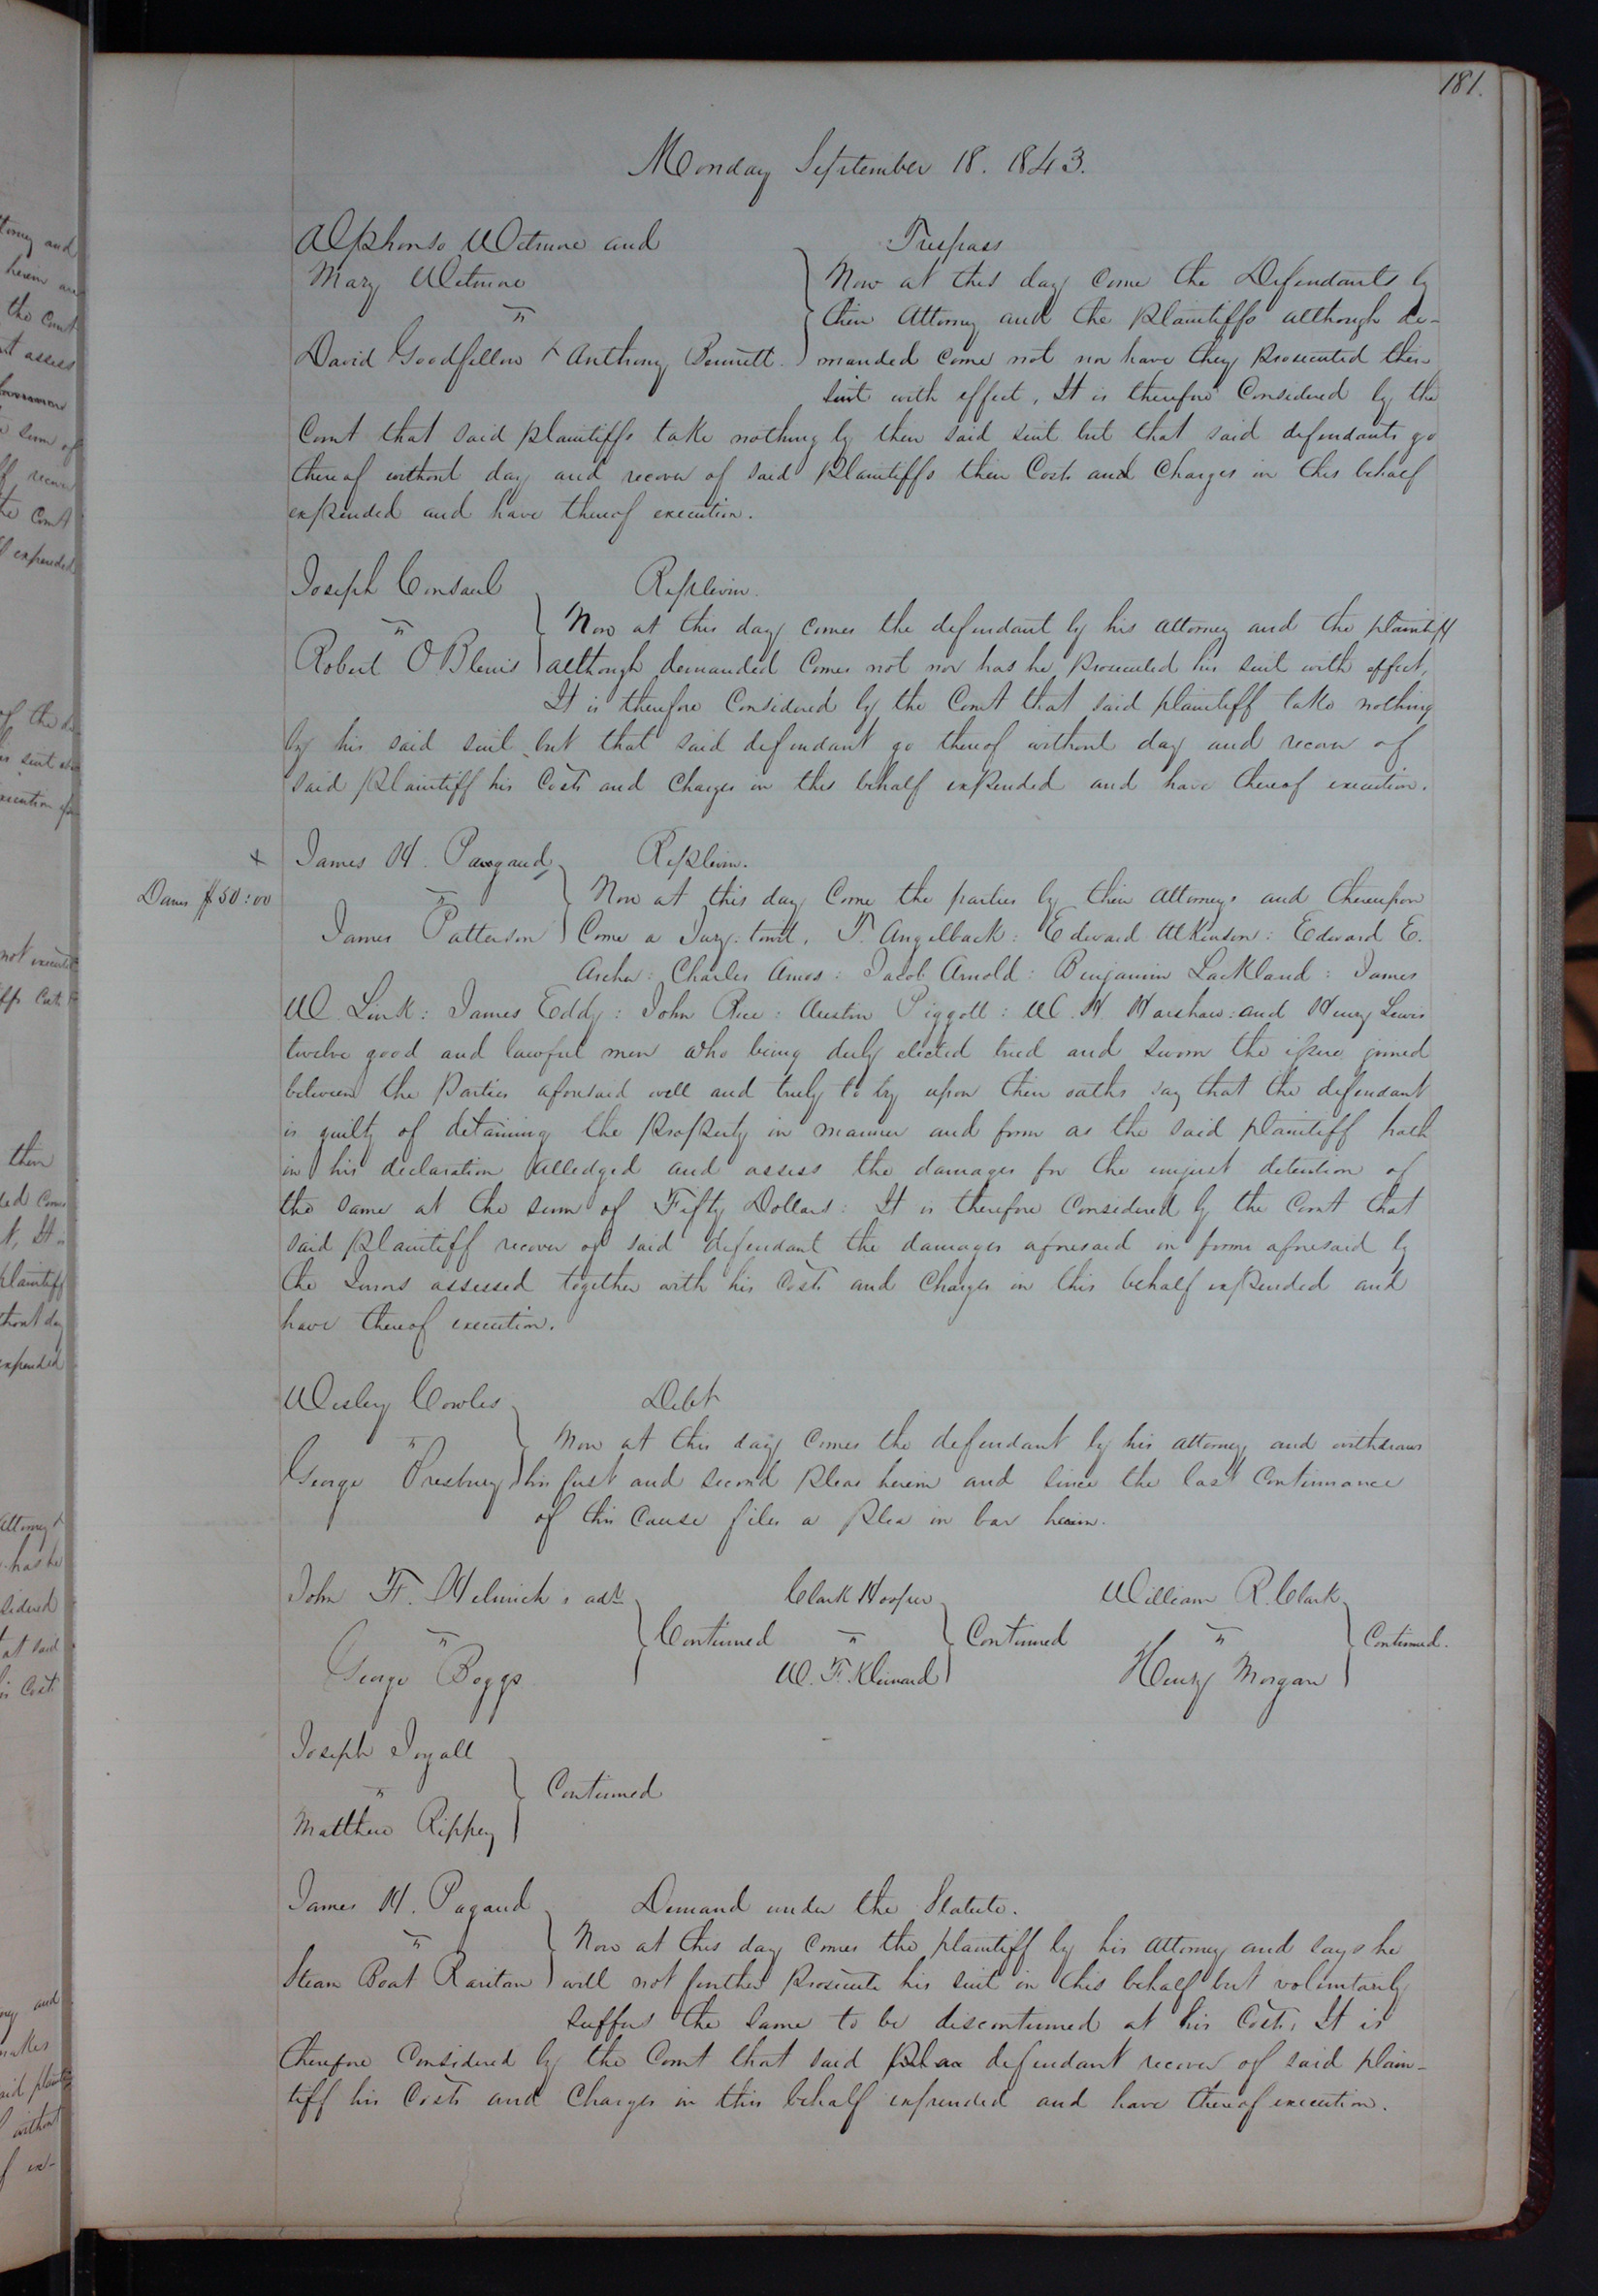 181.
Monday September 18. 1843.
Alphonso Wetmore and
Mary Wetmore
vs
David Goodfellow & Anthony Bennett.
Trespass
Now at this day come the Defendants by
their Attorney and the Plaintiffs although de-
manded come not nor have they Prosecuted their
suit with effect, It is therefore Considered by the
Court that said plaintiffs take nothing by their said suit but that said defendants go
thereof without day and recover of said Plaintiffs their Costs and Charges in this behalf
expended and have thereof execution.
Joseph Consaul
vs
Robert O Blenis
Replevin.
Now at this day comes the defendant by his attorney and the plaintiff
although demanded comes not nor has he Prosecuted his suit with effect,
It is therefore Considered by the Court that said plaintiff take nothing
by his said suit but that said defendant go thereof without day and recover of
said Plaintiff his Costs and Charges in this behalf expended and have thereof execution.
x
Dams $50:00
James H.
vs
James Patterson
Replevin.
Now at this day Come the parties by their attorneys and thereupon
Come a Jury. towit. T. Angelback: Edward Atkinson: Edward E.
Archer: Charles Amos: Jacob Arnold: Benjamin Lackland: James
W. Link: James Eddy: John Rice: Austin Piggott: W. H. Harshaw: and Henry Lewis
twelve good and lawful men who being duly elected tried and sworn the issue joined
between the Parties aforesaid well and truly to try upon their oaths say that the defendant
is guilty of detaining the Property in manner and form as the said plaintiff hath
in his declaration alledged and assess the damages for the unjust detention of
the same at the sum of Fifty Dollars: It is therefore Considered by the Court that
said Plaintiff recover of said defendant the damages aforesaid in form aforesaid by
the Jurors assessed together with his Costs and Charges in this behalf expended and
have thereof execution.
Wesley Cowles
vs
George Presbury
Debt
Now at this day comes the defendant by his attorney and withdraws
his first and second Pleas herein and since the last Continuance
of this Cause files a Plea in bar herein.
John F. Helmick's adr.
vs
George Boggs
Continued
Clark Hooper
vs
W. F.
Continued
William R. Clark
vs
Henry Morgan
Continued.
Joseph Joyall
vs
Matthew Rippey
Continued
James H. Pagaud
vs
Steam Boat Raritan
Demand under the Statute.
Now at this day comes the plaintiff by his attorney and says he
will not further Prosecute his suit in this behalf but voluntarily
suffers the same to be discontinued at his Costs, It is
therefore Considered by the Court that said defendant recover of said plain-
tiff his Costs and Charges in this behalf expended and have thereof execution.